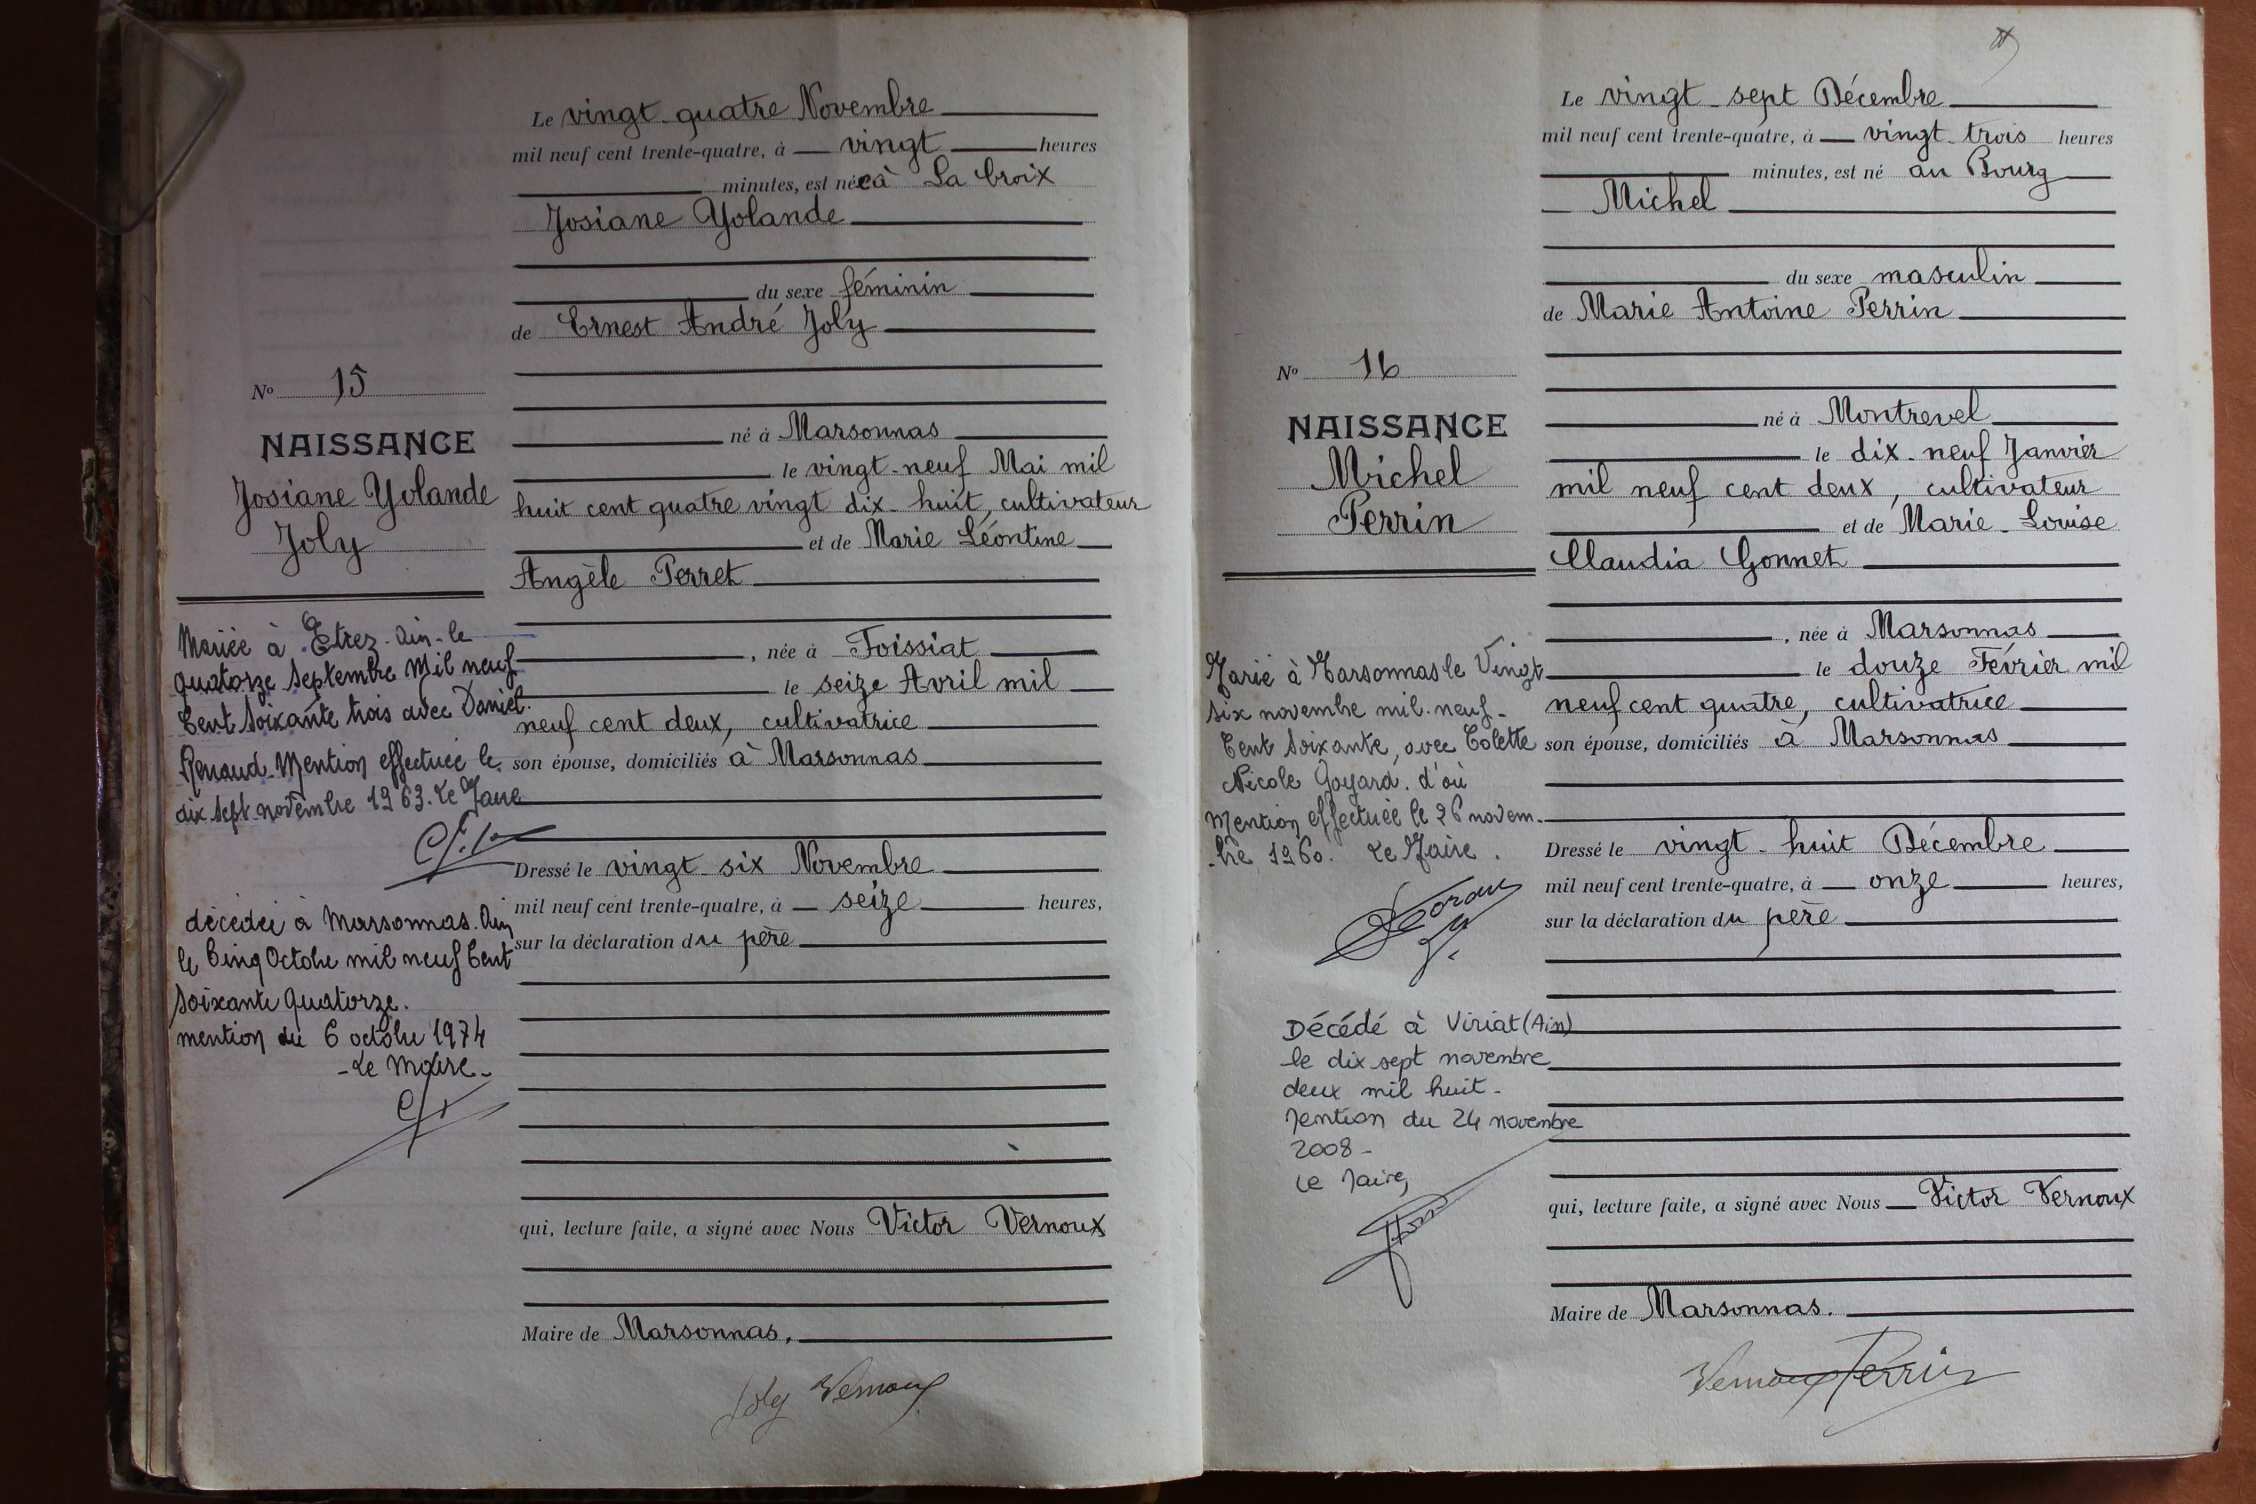 Le vingt-quatre Novembre
mil neuf cent trente-quatre, à vingt heures
minutes, est née à La Croix
Josiane Yolande
du sexe féminin
de Ernest André Joly
No 15
NAISSANCE
Josiane Yolande
Joly
né à Marsonnas
le vingt-neuf Mai mil
huit cent quatre vingt dix-huit, cultivateur
et de Marie Léontine
Angèle Perret
, née à Foissiat
le seize Avril mil
neuf cent deux, cultivatrice
son épouse, domiciliés à Marsonnas
Dressé le vingt-six Novembre
mil neuf cent trente-quatre, à seize heures,
sur la déclaration du père
qui, lecture faite, a signé avec Nous Victor Vernoux
Maire de Marsonnas.
Joly Vernoux
Mariée à Etrez-Ain-le
quatorze septembre Mil neuf
Cent soixante trois avec Daniel
Renaud. Mention effectuée le
dix sept novembre 1963. Le Maire
décédée à Marsonnas. Ain
le Cinq Octobre mil neuf Cent
soixante quatorze.
mention du 6 octobre 1974
-Le Maire-
Le vingt-sept Décembre
mil neuf cent trente-quatre, à vingt-trois heures
minutes, est né au Bourg
Michel
du sexe masculin
de Marie Antoine Perrin
No 16
NAISSANCE
Michel
Perrin
né à Montrevel
le dix-neuf Janvier
mil neuf cent deux, cultivateur
et de Marie-Louise
Claudia Gonnet
, née à Marsonnas
le douze Février mil
neuf cent quatre, cultivatrice
son épouse, domiciliés à Marsonnas
Dressé le vingt-huit Décembre
mil neuf cent trente-quatre, à onze heures,
sur la déclaration du père
qui, lecture faite, a signé avec Nous Victor Vernoux
Maire de Marsonnas.
Vernoux Perrin
Marié à Marsonnas le Vingt
six novembre mil-neuf-
Cent soixante, avec Colette
Nicole Goyard. d'où
Mention effectuée le 26 novem-
-bre 1960. Le Maire.
Décédé à Viriat (Ain)
le dix-sept novembre
deux mil huit-
Mention du 24 novembre
2008-
Le Maire,